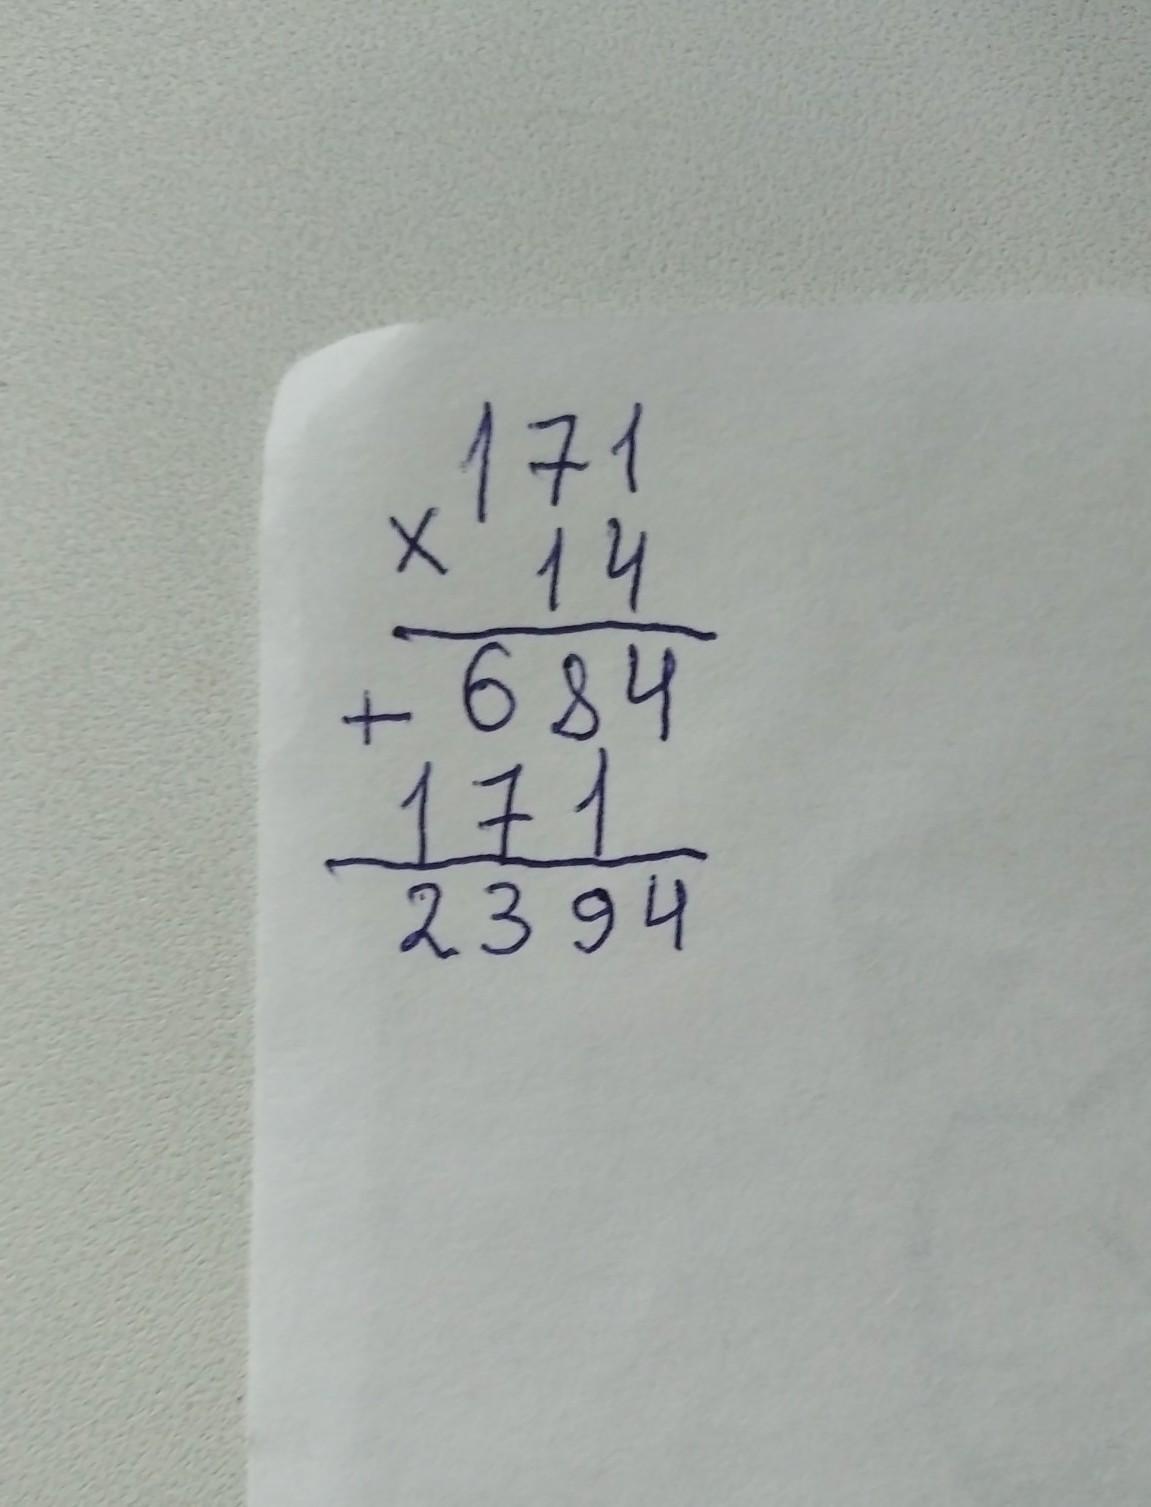 171
× 14
+ 684
171
2394